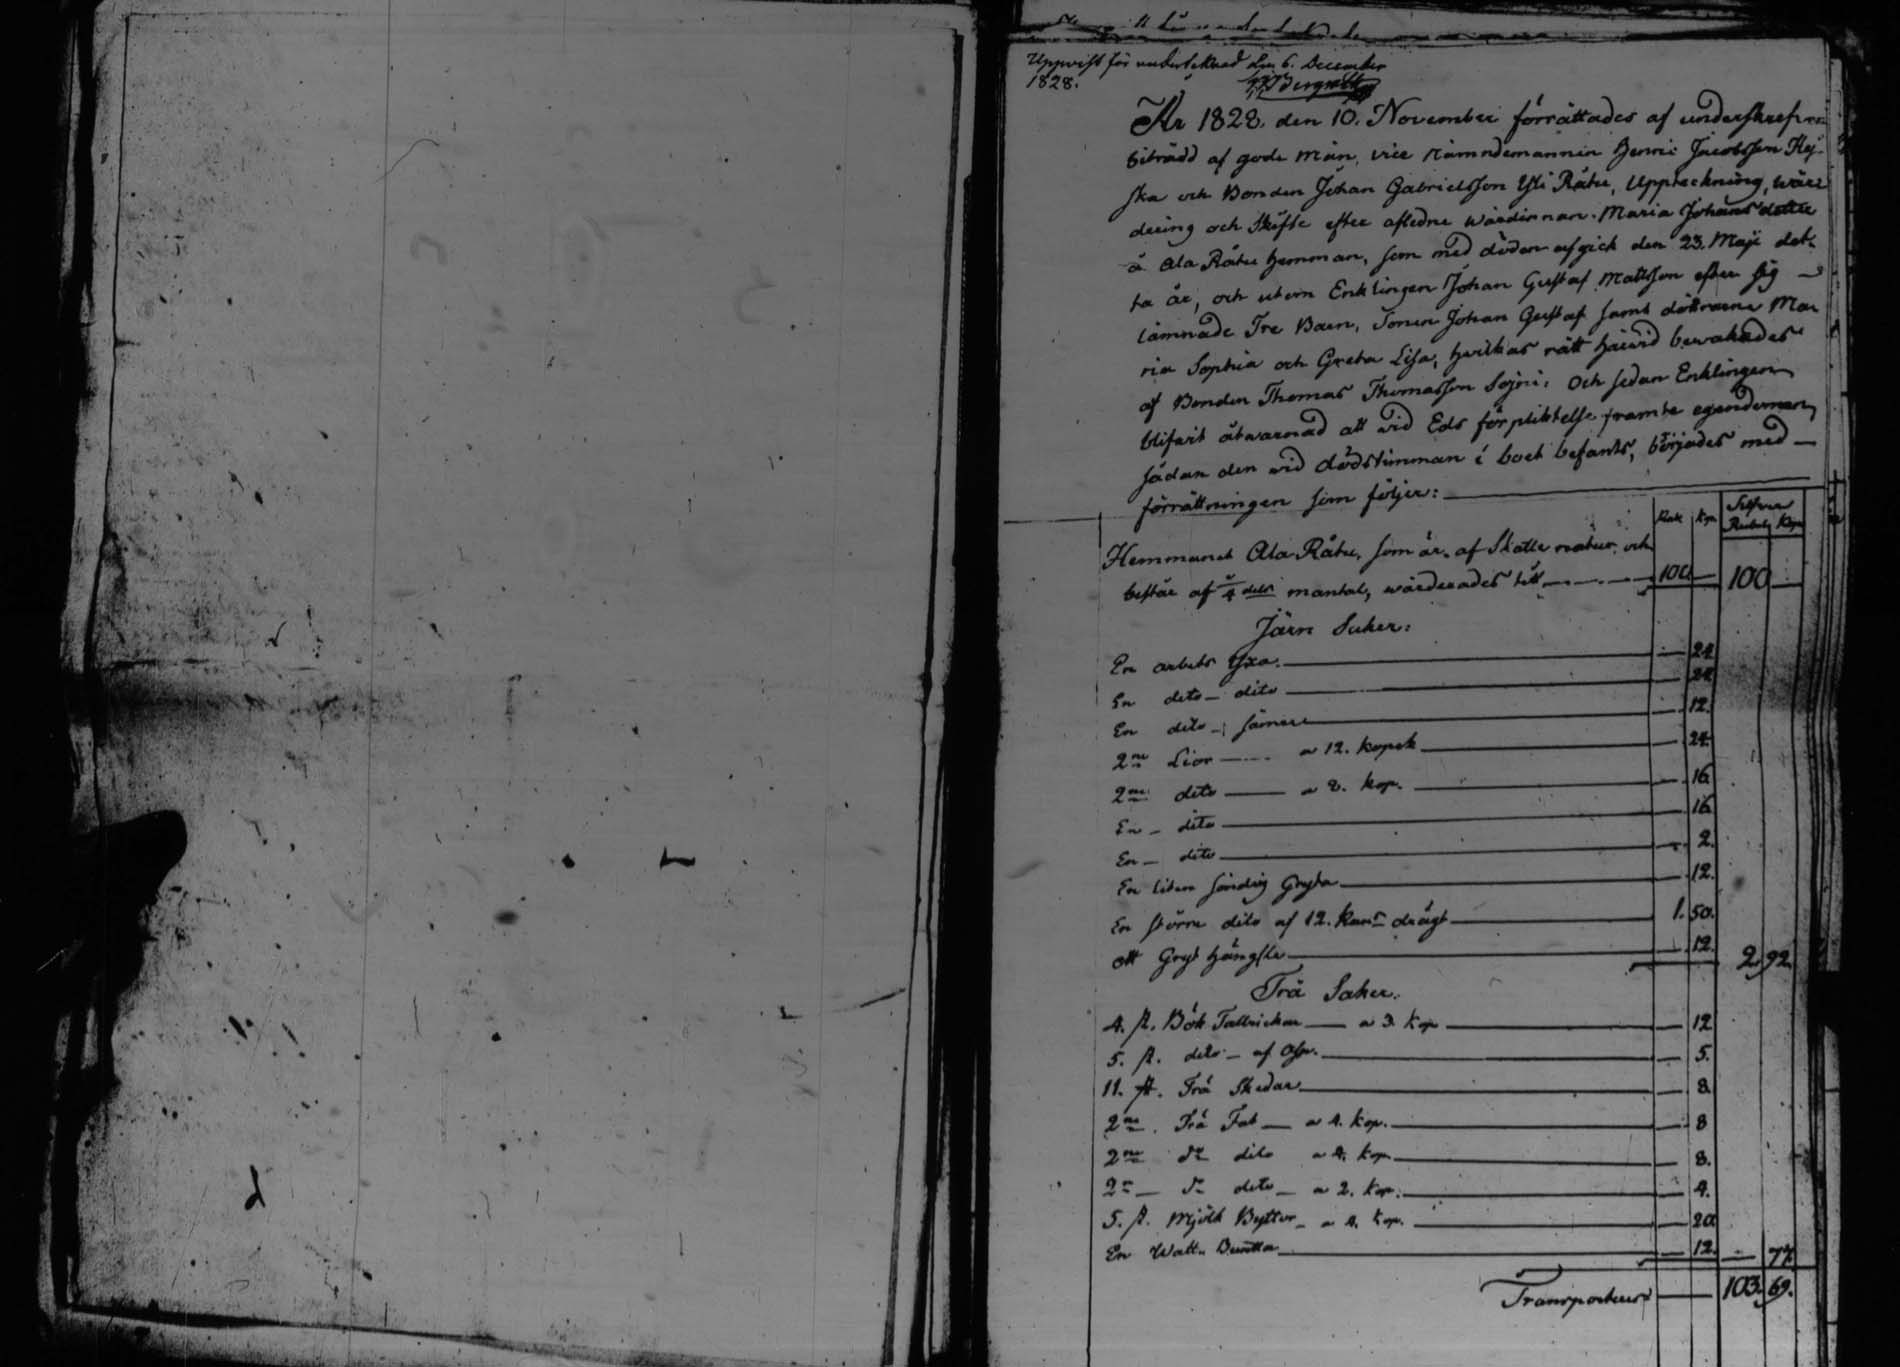 Uppvist för undertecknad den 6. December
1828.
År 1828. den 10. November förrättades af underskrefven
biträdd af gode män, vice nämndemannen Henric Jacobsson Kej-
ska och Bonden Johan Gabrielsson Yli Rätu, Uppteckning, wär-
dering och Skifte efter afledne wärdinnan Maria Johansdotter
å Ala Rätu hemman, som med döden afgick den 23. Maji det-
ta år, och utom Enklingen Johan Gustaf Mattsson efter sig
lämnade Tre Barn, Sonen Johan Gustaf samt döttrarne Ma
ria Sophia och Greta Lisa, hvilkas rätt härvid bewakades
af Bonden Thomas Thomasson Sojni: Och sedan Enklingen
blifvit åtwarnad att wid Eds förpliktelse framte egendomen
sådan den wid dödstimman i boet befants, börjades med
förrättningen som följer:
Rub Kop Silfver
Rubel Kop
Hemmanet Ala Rätu, som är af Skatte natur och
består af 4 dels mantal, wärderades till 100 100
Järn Saker:
En arbets Yxa. 24.
En dito dito 24
En dito sämere 12.
2ne Lior a 12. kopek 24.
2ne dito a 8. kop. 16.
En dito 16.
En dito 2.
En liten söndrig Gryta 12.
En större dito af 12. Kans drägt 1. 50.
Ett Gryt hängsle 12. 2. 92.
Trä Saker.
4. st. Bök Tallrickar a 3. kop 12
5. st. dito af Asp. 5.
11. st. Trä Skedar 8.
2ne. Trä Fat a 4. kop. 8
2ne do dito a 4. kop 8.
2ne do dito a 2. kop. 4.
5. st. Mjölk Byttor a 4. kop. 20
En Watt. Bunka 12. 77.
Transporteras 103. 69.